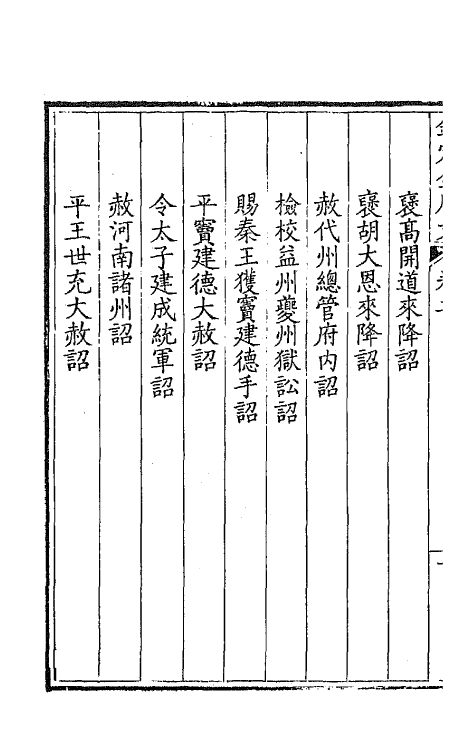 褒髙開道來降詔
褒胡大恩來降詔
赦代州總管府内詔
檢校益州夔州獄訟詔
賜秦王獲竇建德手詔
平竇建德大赦詔
令太子建成統軍詔
赦河南諸州詔
平王世充大赦詔